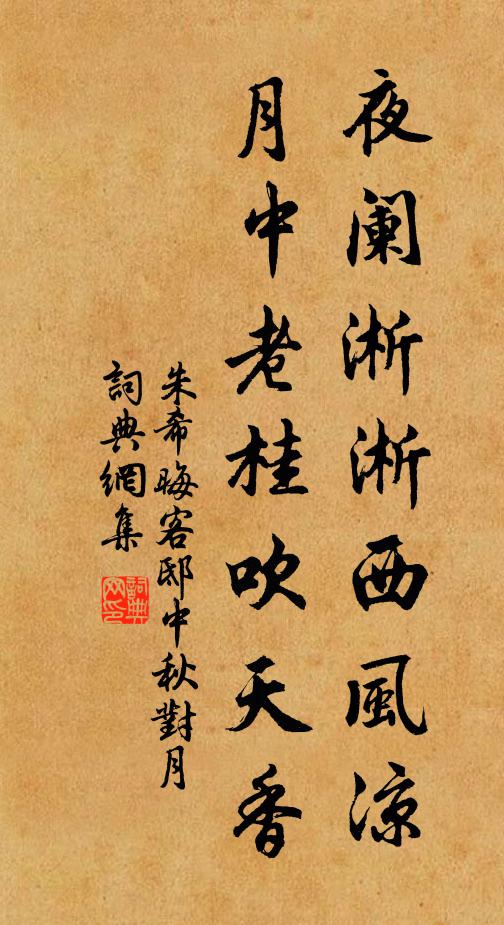 夜阑淅淅西風凉
月中老桂吹天香
朱希晦客邸中秋對月
詞典網集
詞典网印